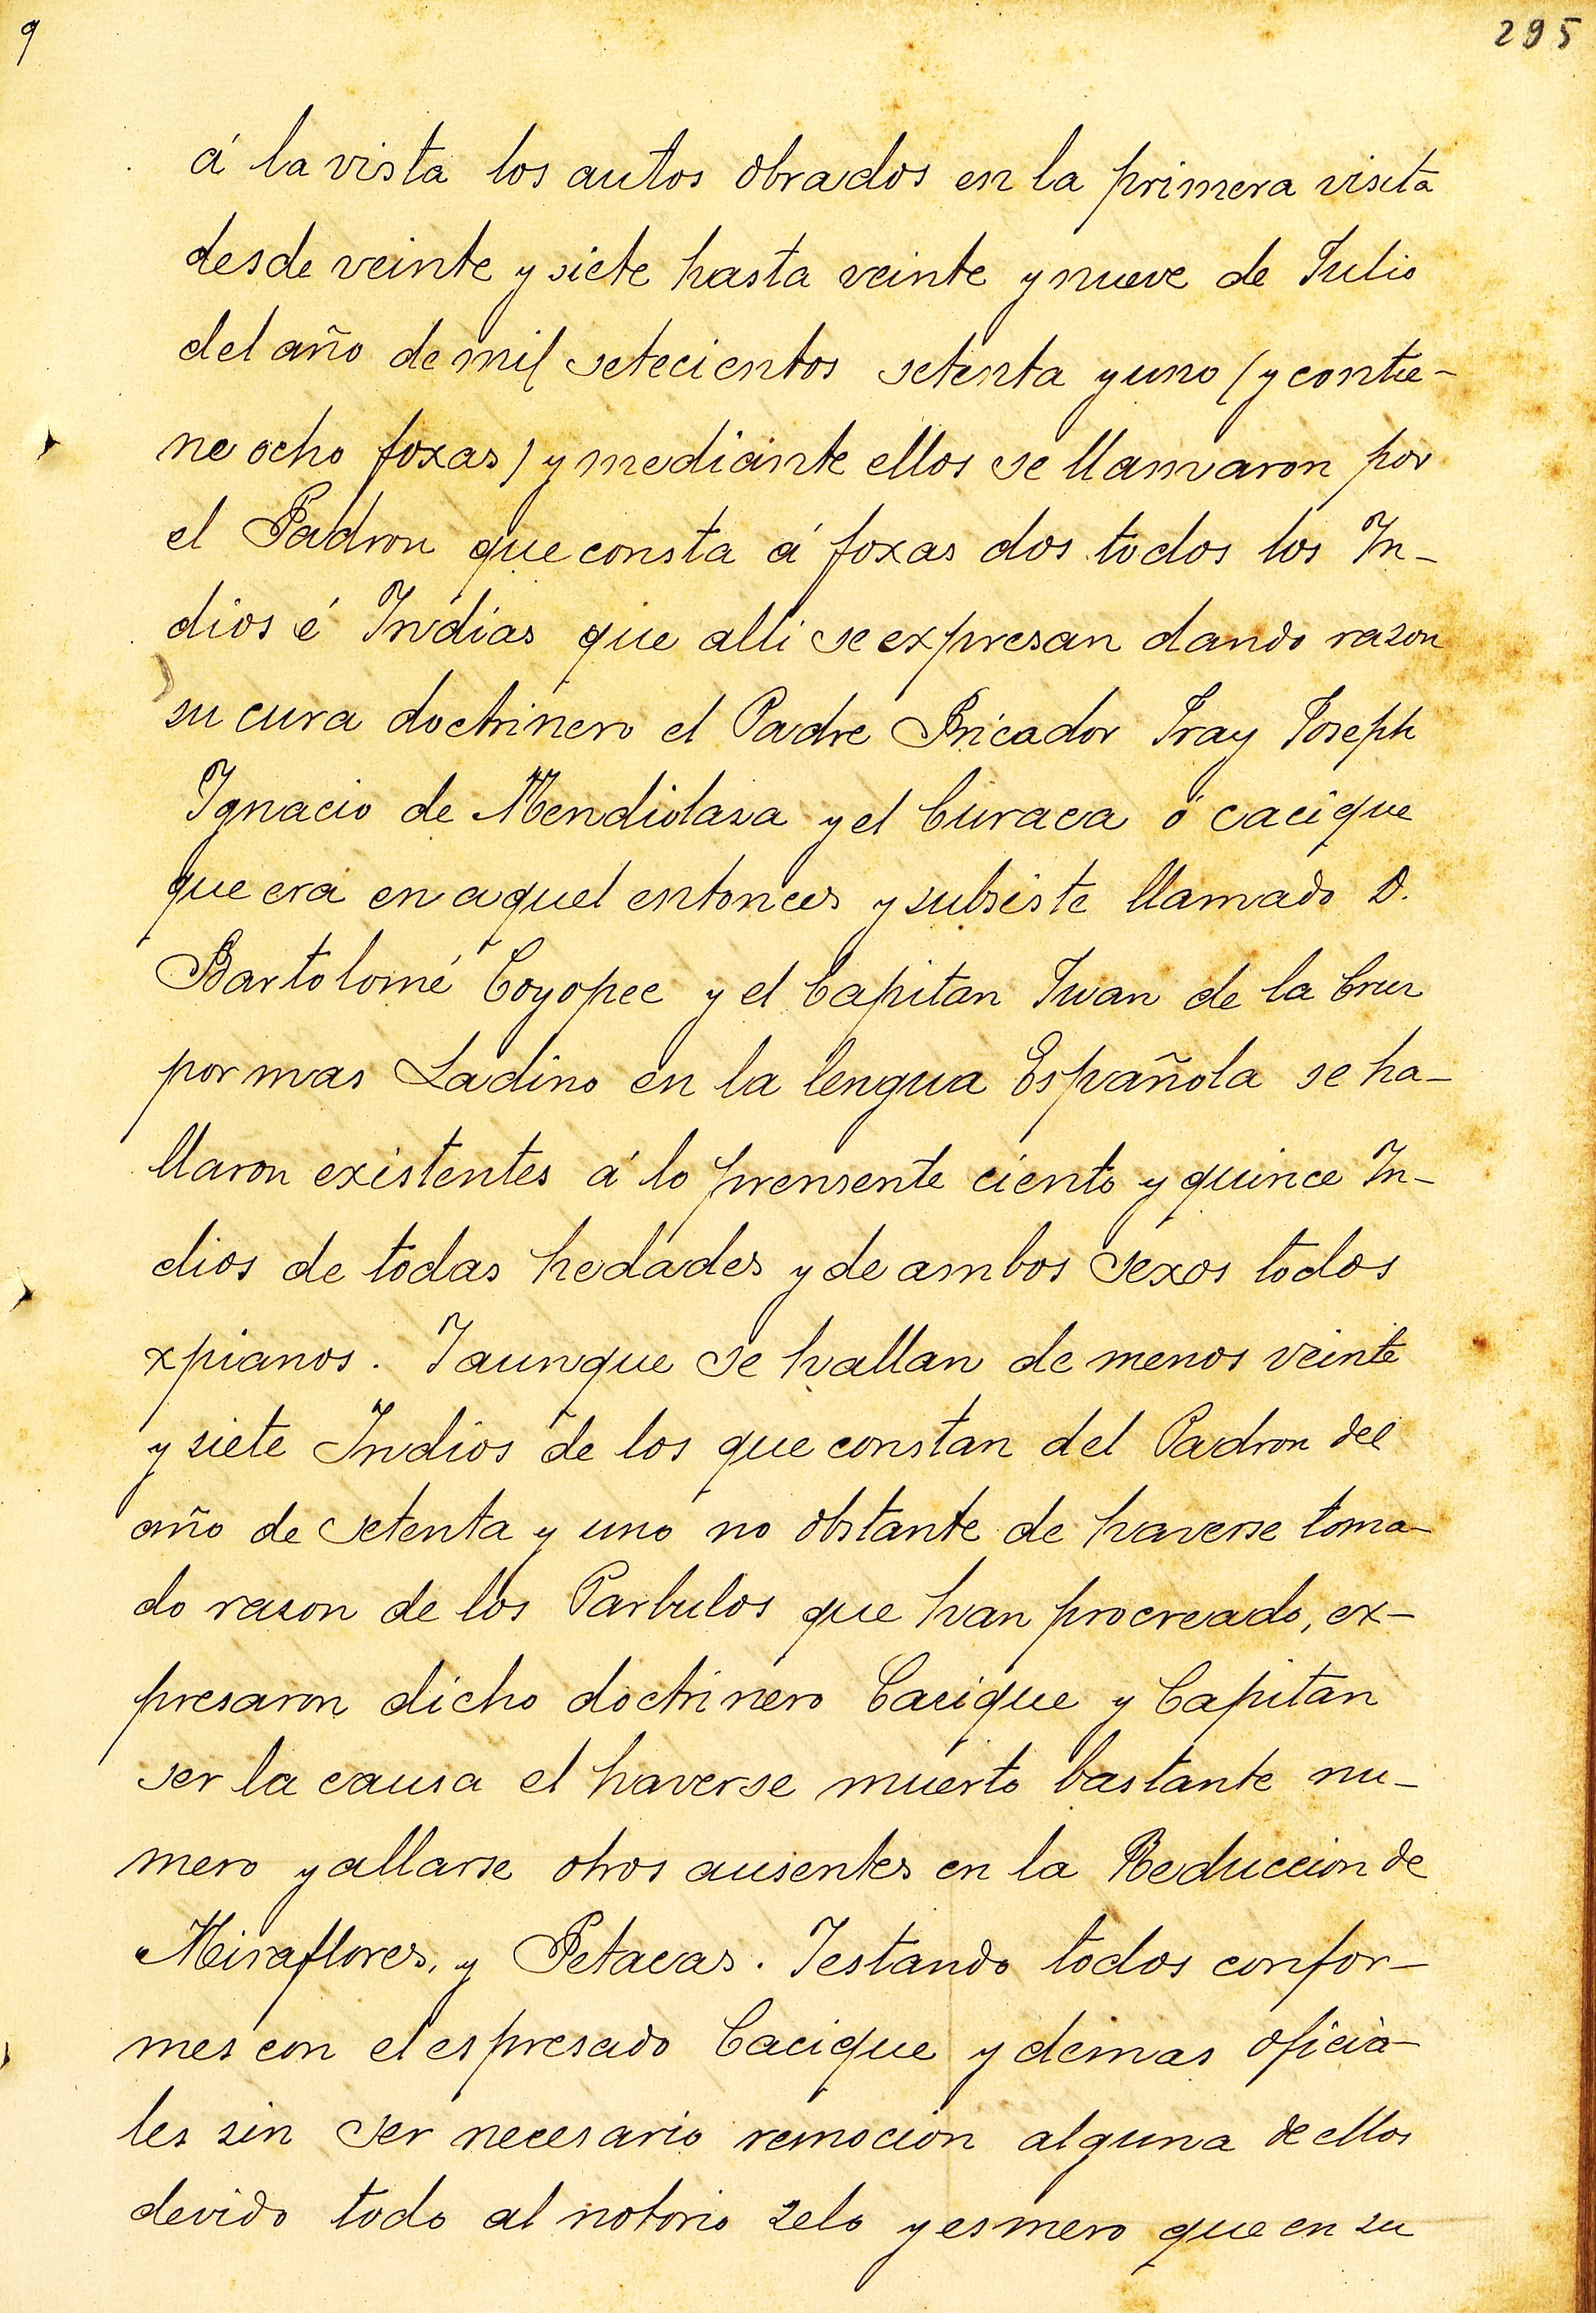 9
295
á la vista los autos obrados en la primera visita
desde veinte y siete hasta veinte y nueve de Julio
del año de mil setecientos setenta y uno (y contie-
ne ocho foxas) y mediante ellos se llamaron por
el Padron que consta á foxas dos todos los In-
dios é Indias que alli se expresan dando razon
su cura doctrinero el Padre Pricador Fray Joseph
Ignacio de Mendiolasa y el Curaca ó cacique
que era en aquel entonces y subsiste llamado D.
Bartolomé Coyopee y el Capitan Juan de la Cruz
por mas Ladino en la lengua Española se ha-
llaron existentes á lo prensente ciento y quince In-
dios de todas hedades y de ambos sexos todos
xpianos. Y aunque se hallan de menos veinte
y siete Indios de los que constan del Padron del
año de setenta y uno no obstante de haverse toma-
do razon de los Parbulos que han procreado, ex-
presaron dicho doctrinero Cacique y Capitan
ser la causa el haverse muerto bastante nu-
mero y allarse otros ausentes en la Reduccion de
Miraflores, y Petacas. Y estando todos confor-
mes con el espresado Cacique y demas oficia-
les sin ser necesario remocion alguna de ellos
devido todo al notorio zelo y esmero que en su